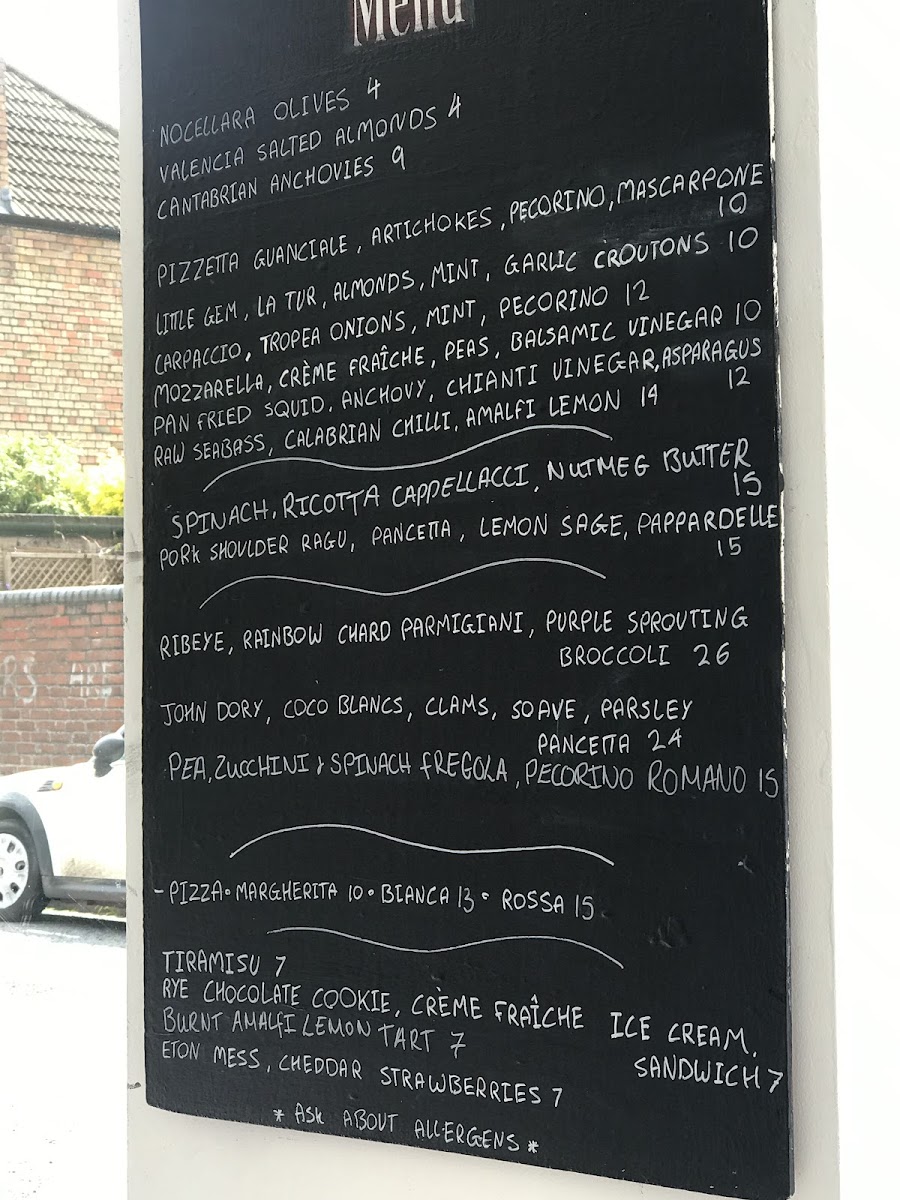 Menu
NOCELLARA OLIVES 4
VALENCIA SALTED ALMONDS 4
CANTABRIAN ANCHOVIES 9
PIZZETTA GUANCIALE, ARTICHOKES, PECORINO, MASCARPONE
10
LITTLE GEM, LA TUR, ALMONDS, MINT, GARLIC CROUTONS 10
CARPACCIO, TROPEA ONIONS, MINT, PECORINO 12
MOZZARELLA, CRÈME FRAÎCHE, PEAS, BALSAMIC VINEGAR 10
PAN FRIED SQUID, ANCHOVY, CHIANTI VINEGAR, ASPARAGUS
12
RAW SEABASS, CALABRIAN CHILLI, AMALFI LEMON 14
SPINACH, RICOTTA CAPPELLACCI, NUTMEG BUTTER
15
PORK SHOULDER RAGU, PANCETTA, LEMON SAGE, PAPPARDELLE
15
RIBEYE, RAINBOW CHARD PARMIGIANI, PURPLE SPROUTING
BROCCOLI 26
JOHN DORY, COCO BLANCS, CLAMS, SOAVE, PARSLEY
PANCETTA 24
PEA, ZUCCHINI & SPINACH FREGOLA, PECORINO ROMANO 15
- PIZZA • MARGHERITA 10 • BIANCA 13 • ROSSA 15
TIRAMISU 7
RYE CHOCOLATE COOKIE, CRÈME FRAÎCHE ICE CREAM,
SANDWICH 7
BURNT AMALFI LEMON TART 7
ETON MESS, CHEDDAR STRAWBERRIES 7
* ASK ABOUT ALLERGENS *